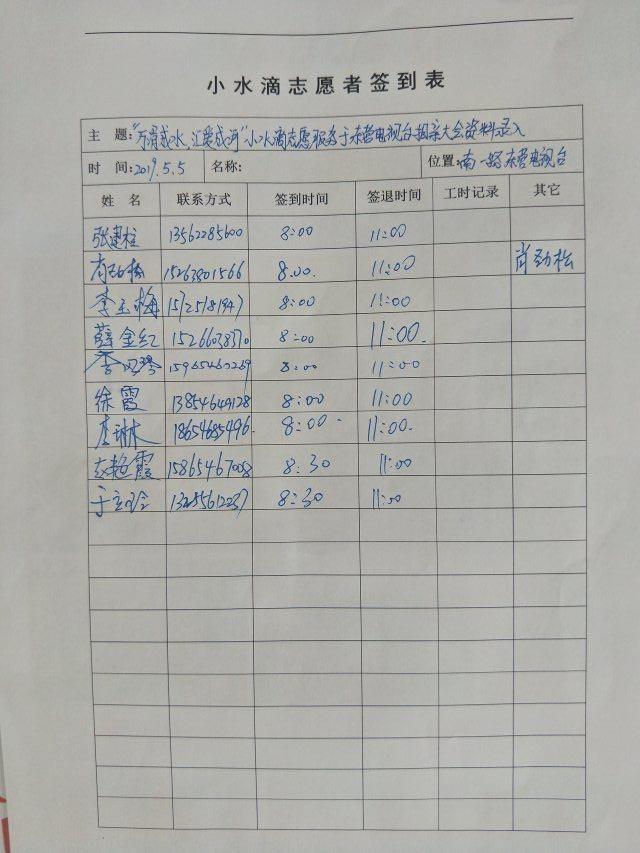 小水滴志愿者签到表
主 题:"万涓成水,汇爱成河"小水滴志愿服务于东营电视台相亲大会资料录入
时 间:2019.5.5 名称: 位置:南一路东营电视台
姓 名 联系方式 签到时间 签退时间 工时记录 其它
张建柱 13562285600 8:00 11:00
肖劲松 15263801566 8:00. 11:00 肖劲松
李玉梅 15725181947 8:00 11:00
薛金红 15266038370 8:00 11:00.
李 8:00 11:00
徐霞 13854649128 8:00 11:00
琳 18654685496. 8:00 11:00.
赵艳霞 15865467008 8:30 11:00
于 8:30 11:00